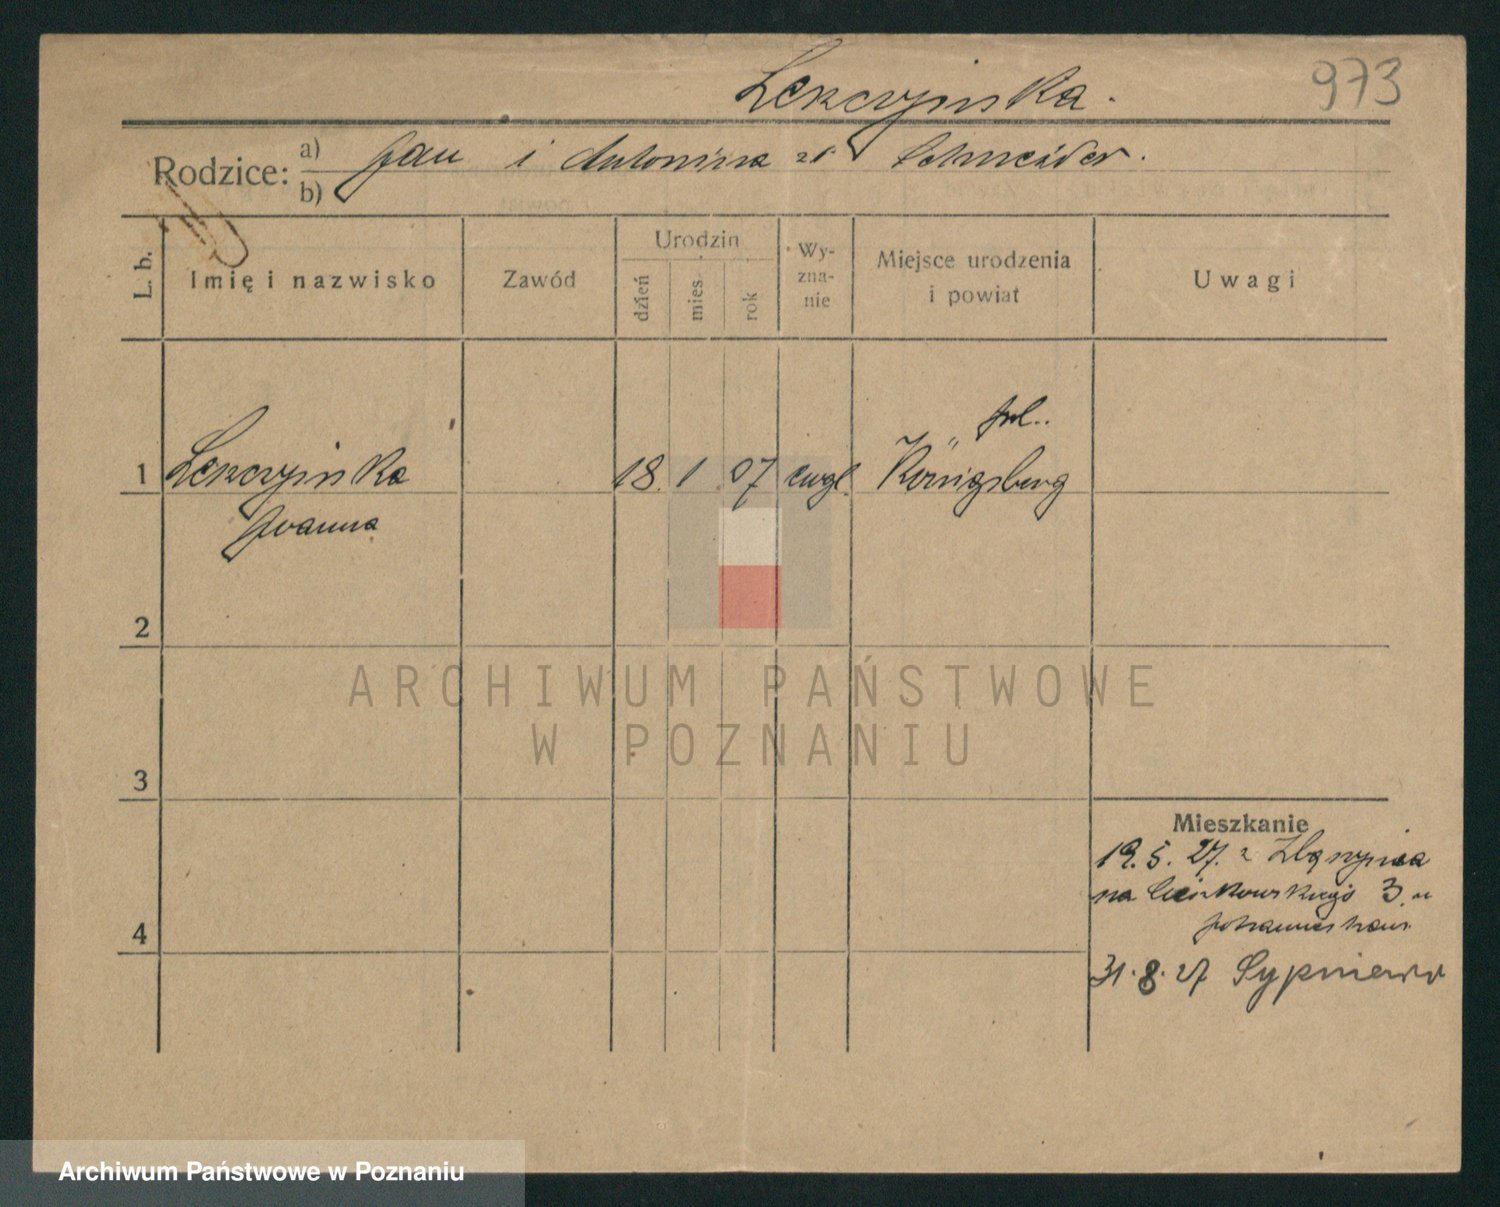 Lekczyińska.
973
Rodzice: a) Jan i Antonina zd Schneider.
b)
L. b.
Imię i nazwisko
Zawód
Urodzin
dzień
mies.
rok
Wy-
zna-
nie
Miejsce urodzenia
i powiat
Uwagi
pol..
1
18. 1 07 ewgl. Königsberg
Joanna
2
ARCHIWUM PAŃSTWOWE
W POZNANIU
3
Mieszkanie
19. 5. 27. z Zbąszynia
na 3
4
31. 8. 27 Sypniewo
Archiwum Państwowe w Poznaniu